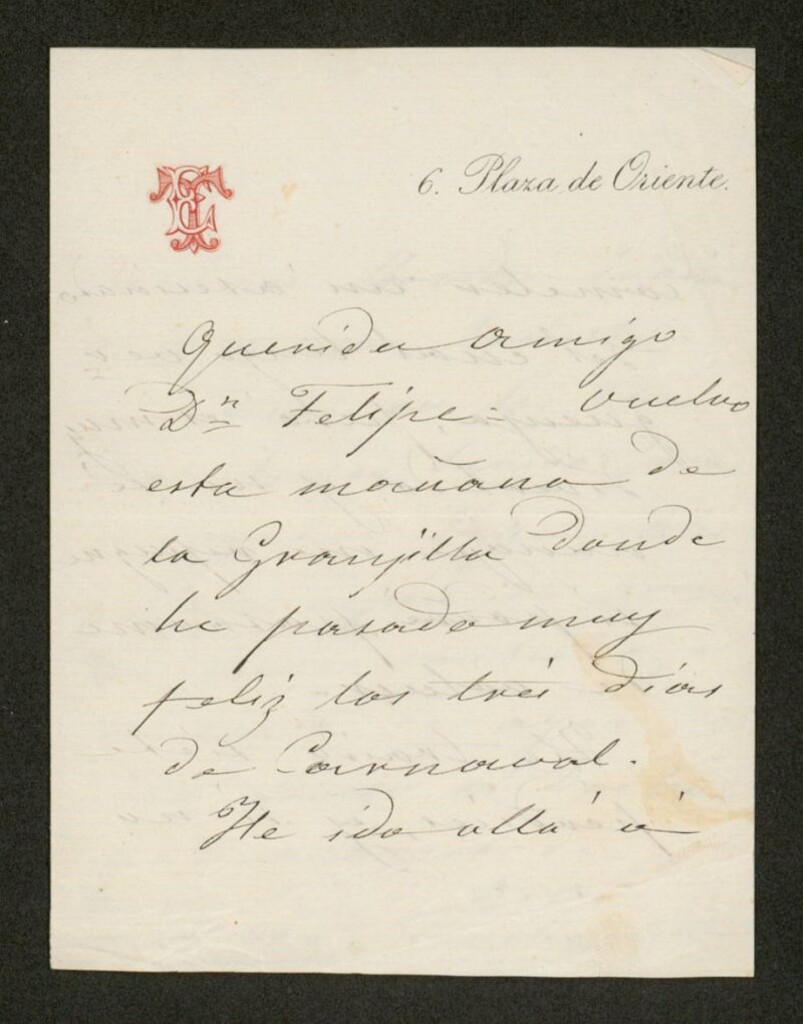 6. Plaza de Oriente.
Querido amigo
Dn Felipe = vuelvo
esta mañana de
la Granjilla donde
he pasado muy
feliz los tres días
de Carnaval.
He ido allá á